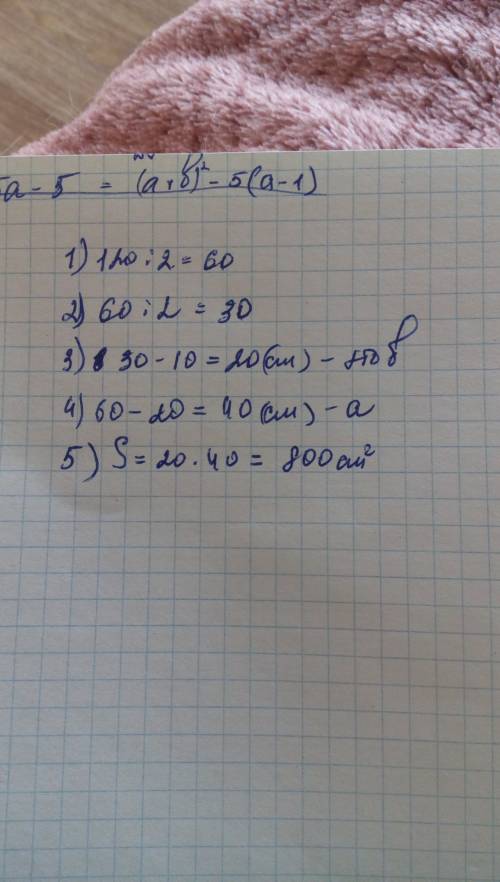 5a - 5 = (a+b)² - 5(a-1)
1) 120 : 2 = 60
2) 60 : 2 = 30
3) 30 - 10 = 20(см) - это b
4) 60 - 20 = 40(см) - a
5) S = 20 · 40 = 800 см²